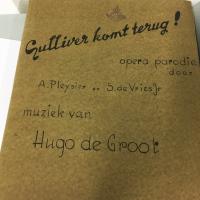 Gulliver komt terug!
opera parodie
door
A. Pleysier en S. de Vries Jr
muziek van
Hugo de Groot